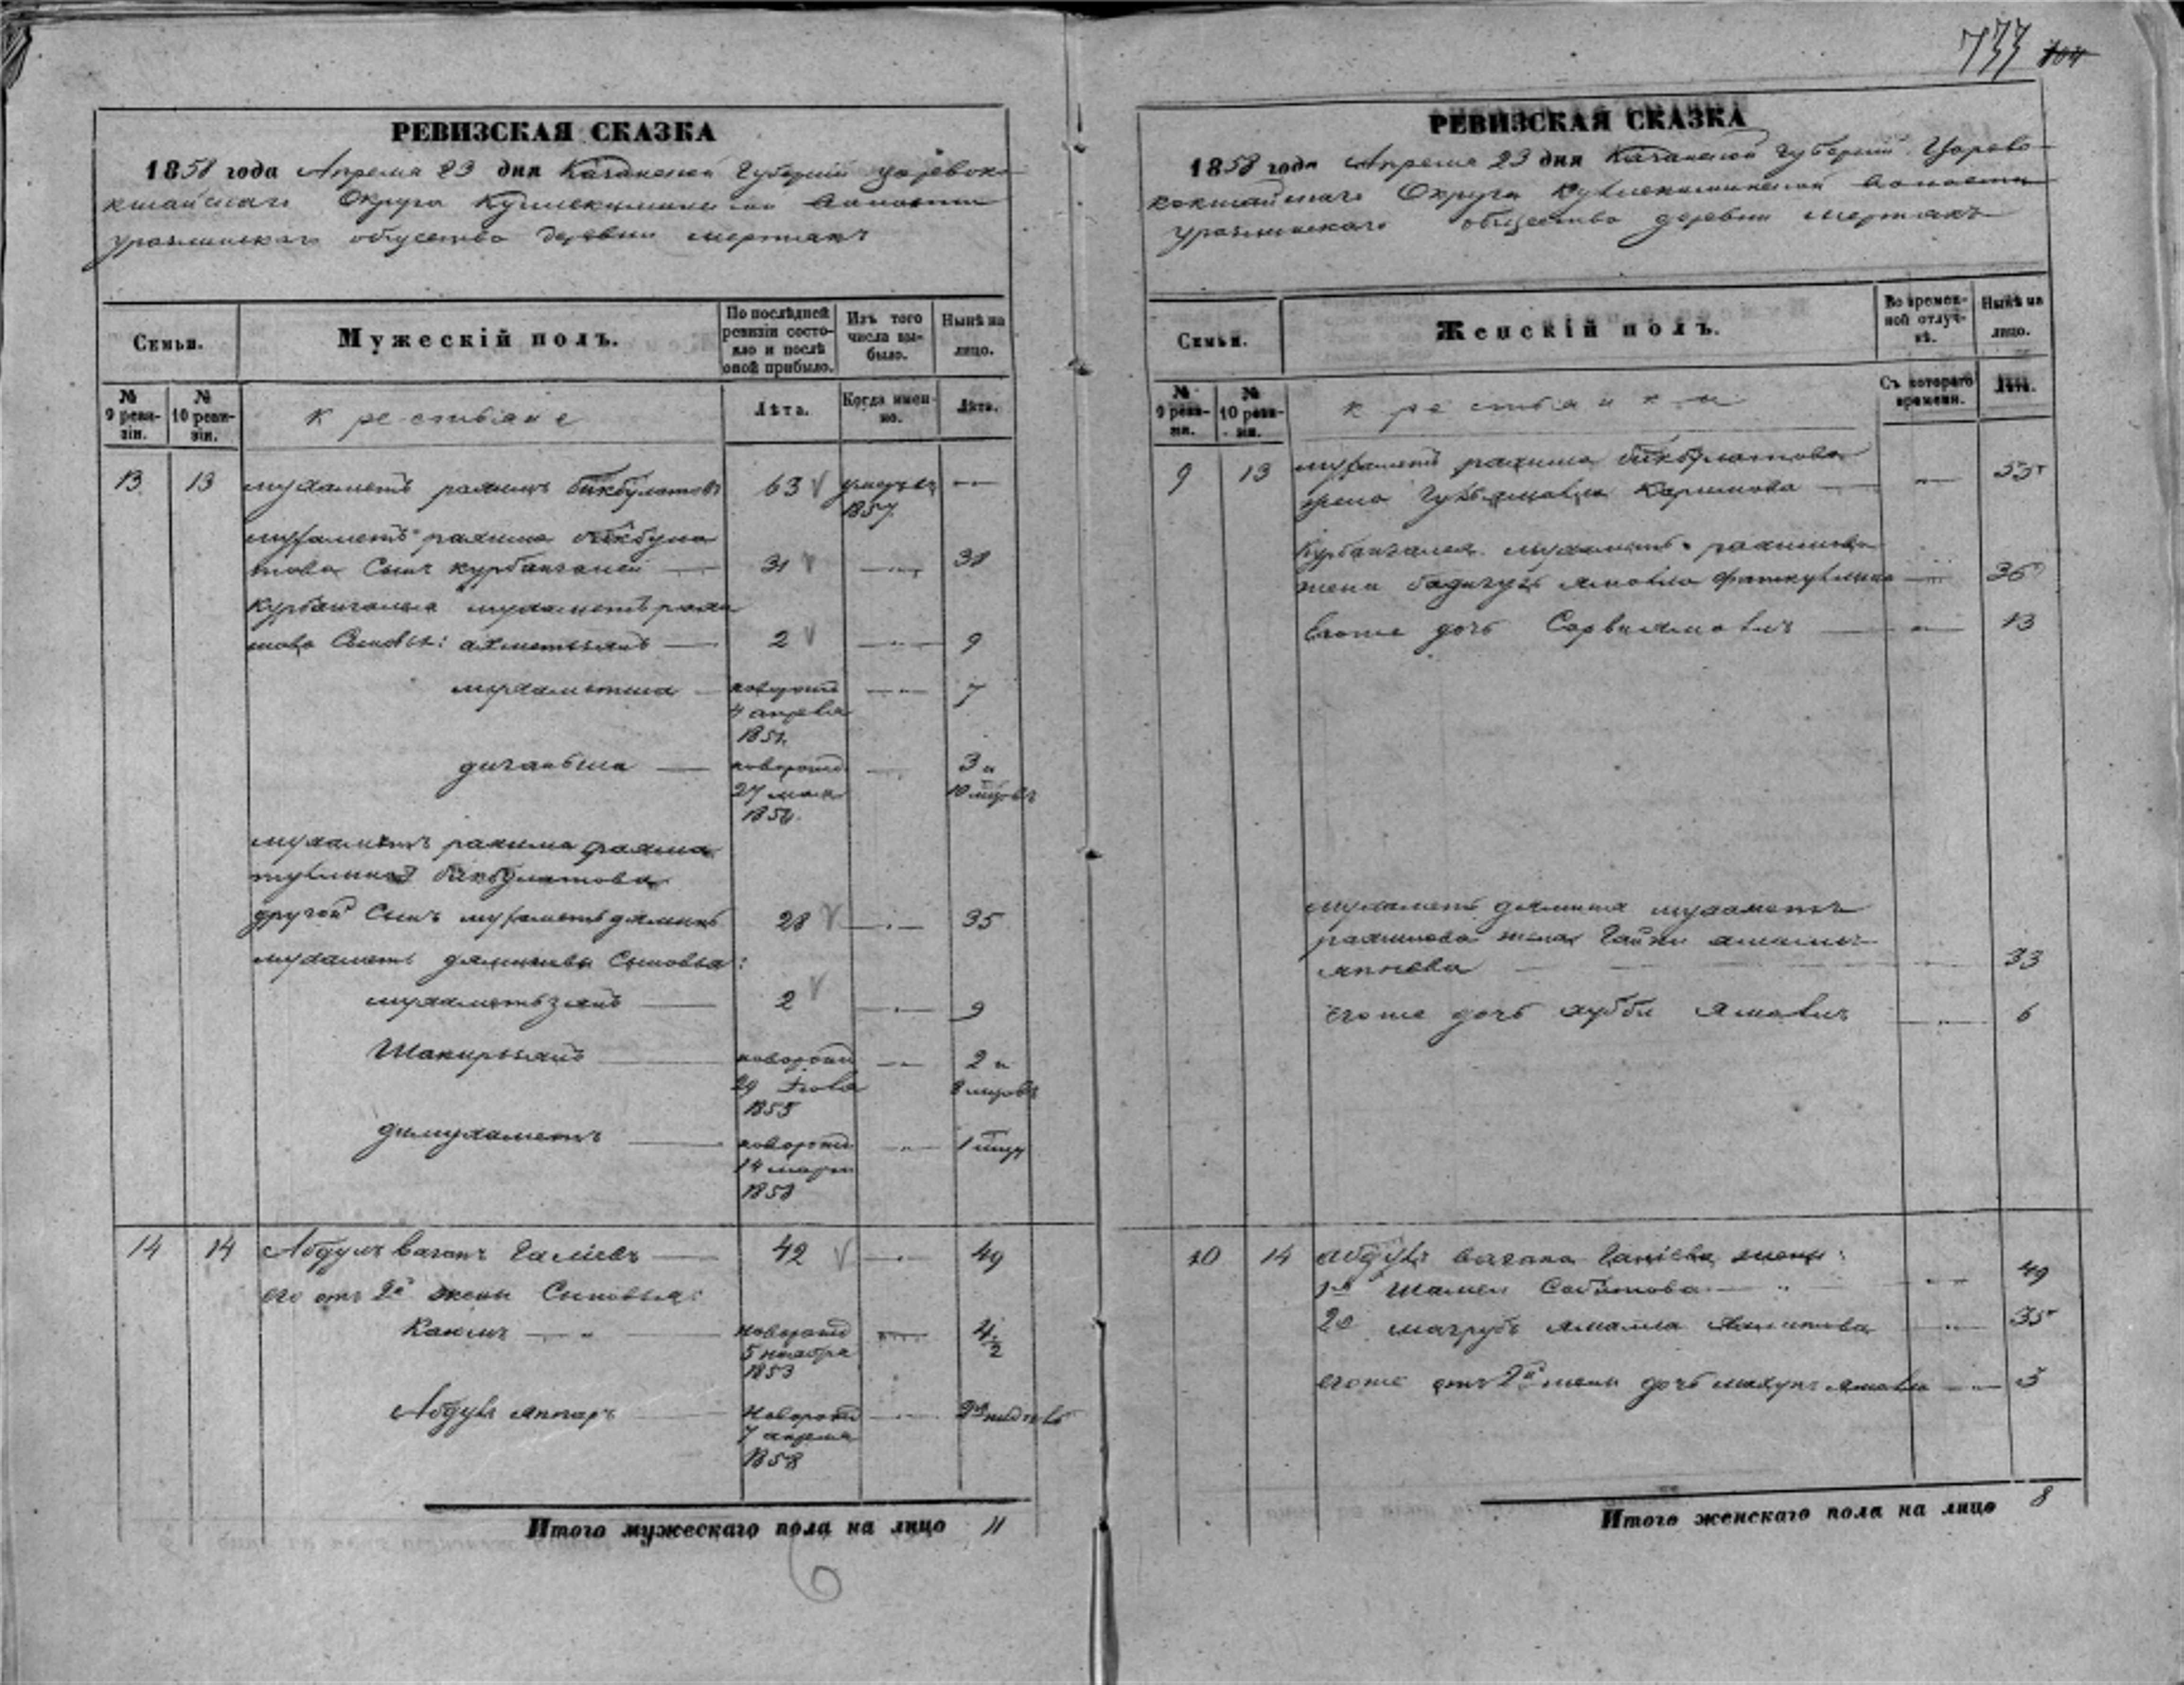 733 104
РЕВИЗСКАЯ СКАЗКА
1858 года Апреля 23 дня Казанской Губернии Царевоко
кшайскаго Округа Кушлекиминской волости
Уразлинскаго общества деревни мертякъ
Семьи.
Мужескій полъ.
По послѣдней ревизіи состояло и послѣ оной прибыло.
Изъ того числа выбыло.
Нынѣ на лицо.
№ 9 ревизіи.
№ 10 ревизіи.
крестьяне
Лѣта.
Когда именно.
Лѣта.
13 13 мухаметъ рахимъ бикбулатовъ 63 умеръ въ 1857
мухаметъ рахима бикбула
това Сынъ курбангалей 31 38
Курбангалея мухаметъ рахи
мова Сыновья: ахметзянъ 2 9
мухаметша новорожд 7
4 апреля
1851.
диганьша новорожд 3 и
27 мая 10 мцовъ
1854.
мухаметъ рахима рахма
туллина бикбулатова
другой Сынъ мухаметъ дяминъ 28 35
мухаметъ дяминевы Сыновья:
мухаметьзянъ 2 9
Шакирзянъ новорожд 2 и
29 8 мцовъ
1855
димухаметъ новорожд 1 мцъ
14 марта
1858
14 14 Абдулъ вагапъ Галіевъ 42 49
его отъ 2й жены Сыновья:
Каюмъ новорожд 4 1/2
5 ноября
1853
Абдулъ япаръ Новорожд 2 недѣль
7 апреля
1858
Итого мужескаго пола на лицо 11
6
РЕВИЗСКАЯ СКАЗКА
1858 года Апреля 23 дня Казанской Губерніи Царево
кокшайскаго Округа Кушлекиминской волости
Уразлинскаго общества деревни мертякъ
Семьи.
Женскій полъ.
Во временной отлучкѣ.
Нынѣ на лицо.
№ 9 ревизіи.
№ 10 ревизіи.
крестьянки
Съ котораго времени.
Лѣта.
9 13 мухаметъ рахима бикбулатова
жена Каримова 55
Курбангалея мухаметъ рахимова
жена бадигулъ ямалла фаткуллина 36
Егоже дочь Сарвиямалъ 13
мухаметъ дямина мухаметъ
рахимова жена Гайни
япаева 33
Егоже дочь хубби Ямалъ 6
10 14 Абдулъ вагапа Галіева жены:
1я Шамси Сабитова 49
2я магрубъ ямалла 35
егоже отъ 2й жены дочь 5
Итого женскаго пола на лицо 8